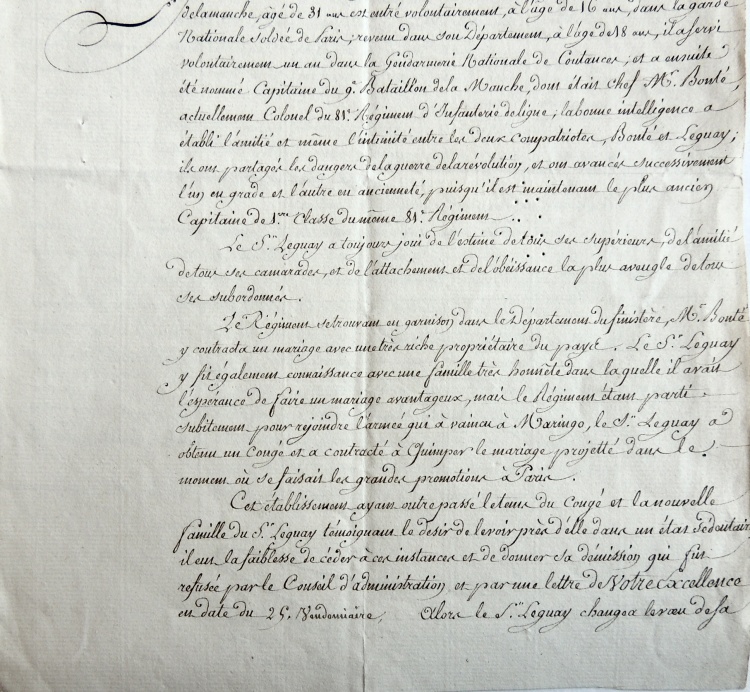 delamanche, âgé de 31 ans est entré volontairement, à l'âge de 16 ans, dans la garde
Nationale Soldée de Paris; revenu dans son Département, à l'âge de 18 ans, il a servi
volontairement un an dans la Gendarmerie Nationale de Coutances; et a ensuite
été nommé Capitaine du 9e. Bataillon de la Manche, dont était chef Mr. Bonté,
actuellement Colonel du 81e. Régiment d'Infanterie de ligne; la bonne intelligence a
établi l'amitié et même l'intimité entre les deux compatriotes, Bonté et Leguay;
ils ont partagés les dangers de la guerre de la révolution, et ont avancés successivement
l'un en grade et l'autre en ancienneté, puisqu'il est maintenant le plus ancien
Capitaine de 1ere. Classe du même 81e. Régiment
Le Sr. Leguay a toujours joui de l'estime de tous ses supérieurs, de l'amitié
de tous ses camarades, et de l'attachement et de l'obéissance la plus aveugle de tous
ses subordonnés.
Le Régiment se trouvant en garnison dans le Département du finistère, Mr. Bonté
y contracta un mariage avec une très riche propriétaire du pays. Le Sr. Leguay
y fit également connaissance avec une famille très honnête dans laquelle il avait
l'espérance de faire un mariage avantageux, mais le Régiment étant parti
subitement pour rejoindre l'armée qui à vaincu à Maringo, le Sr. Leguay a
obtenu un Congé et a contracté à Quimper le mariage projetté dans le
moment où se faisait les grandes promotions à Paris.
Cet établissement ayant outre passé le tems du Congé et la nouvelle
famille du Sr. Leguay témoignant le désir de le voir près d'elle dans un état Sédentaire
il eut la faiblesse de céder à ces instances et de donner sa démission qui fut
refusée par le Conseil d'administration et par une lettre de Votre Excellence
en date du 25. Vendemiaire, Alors le Sr. Leguay changea le vœu de sa